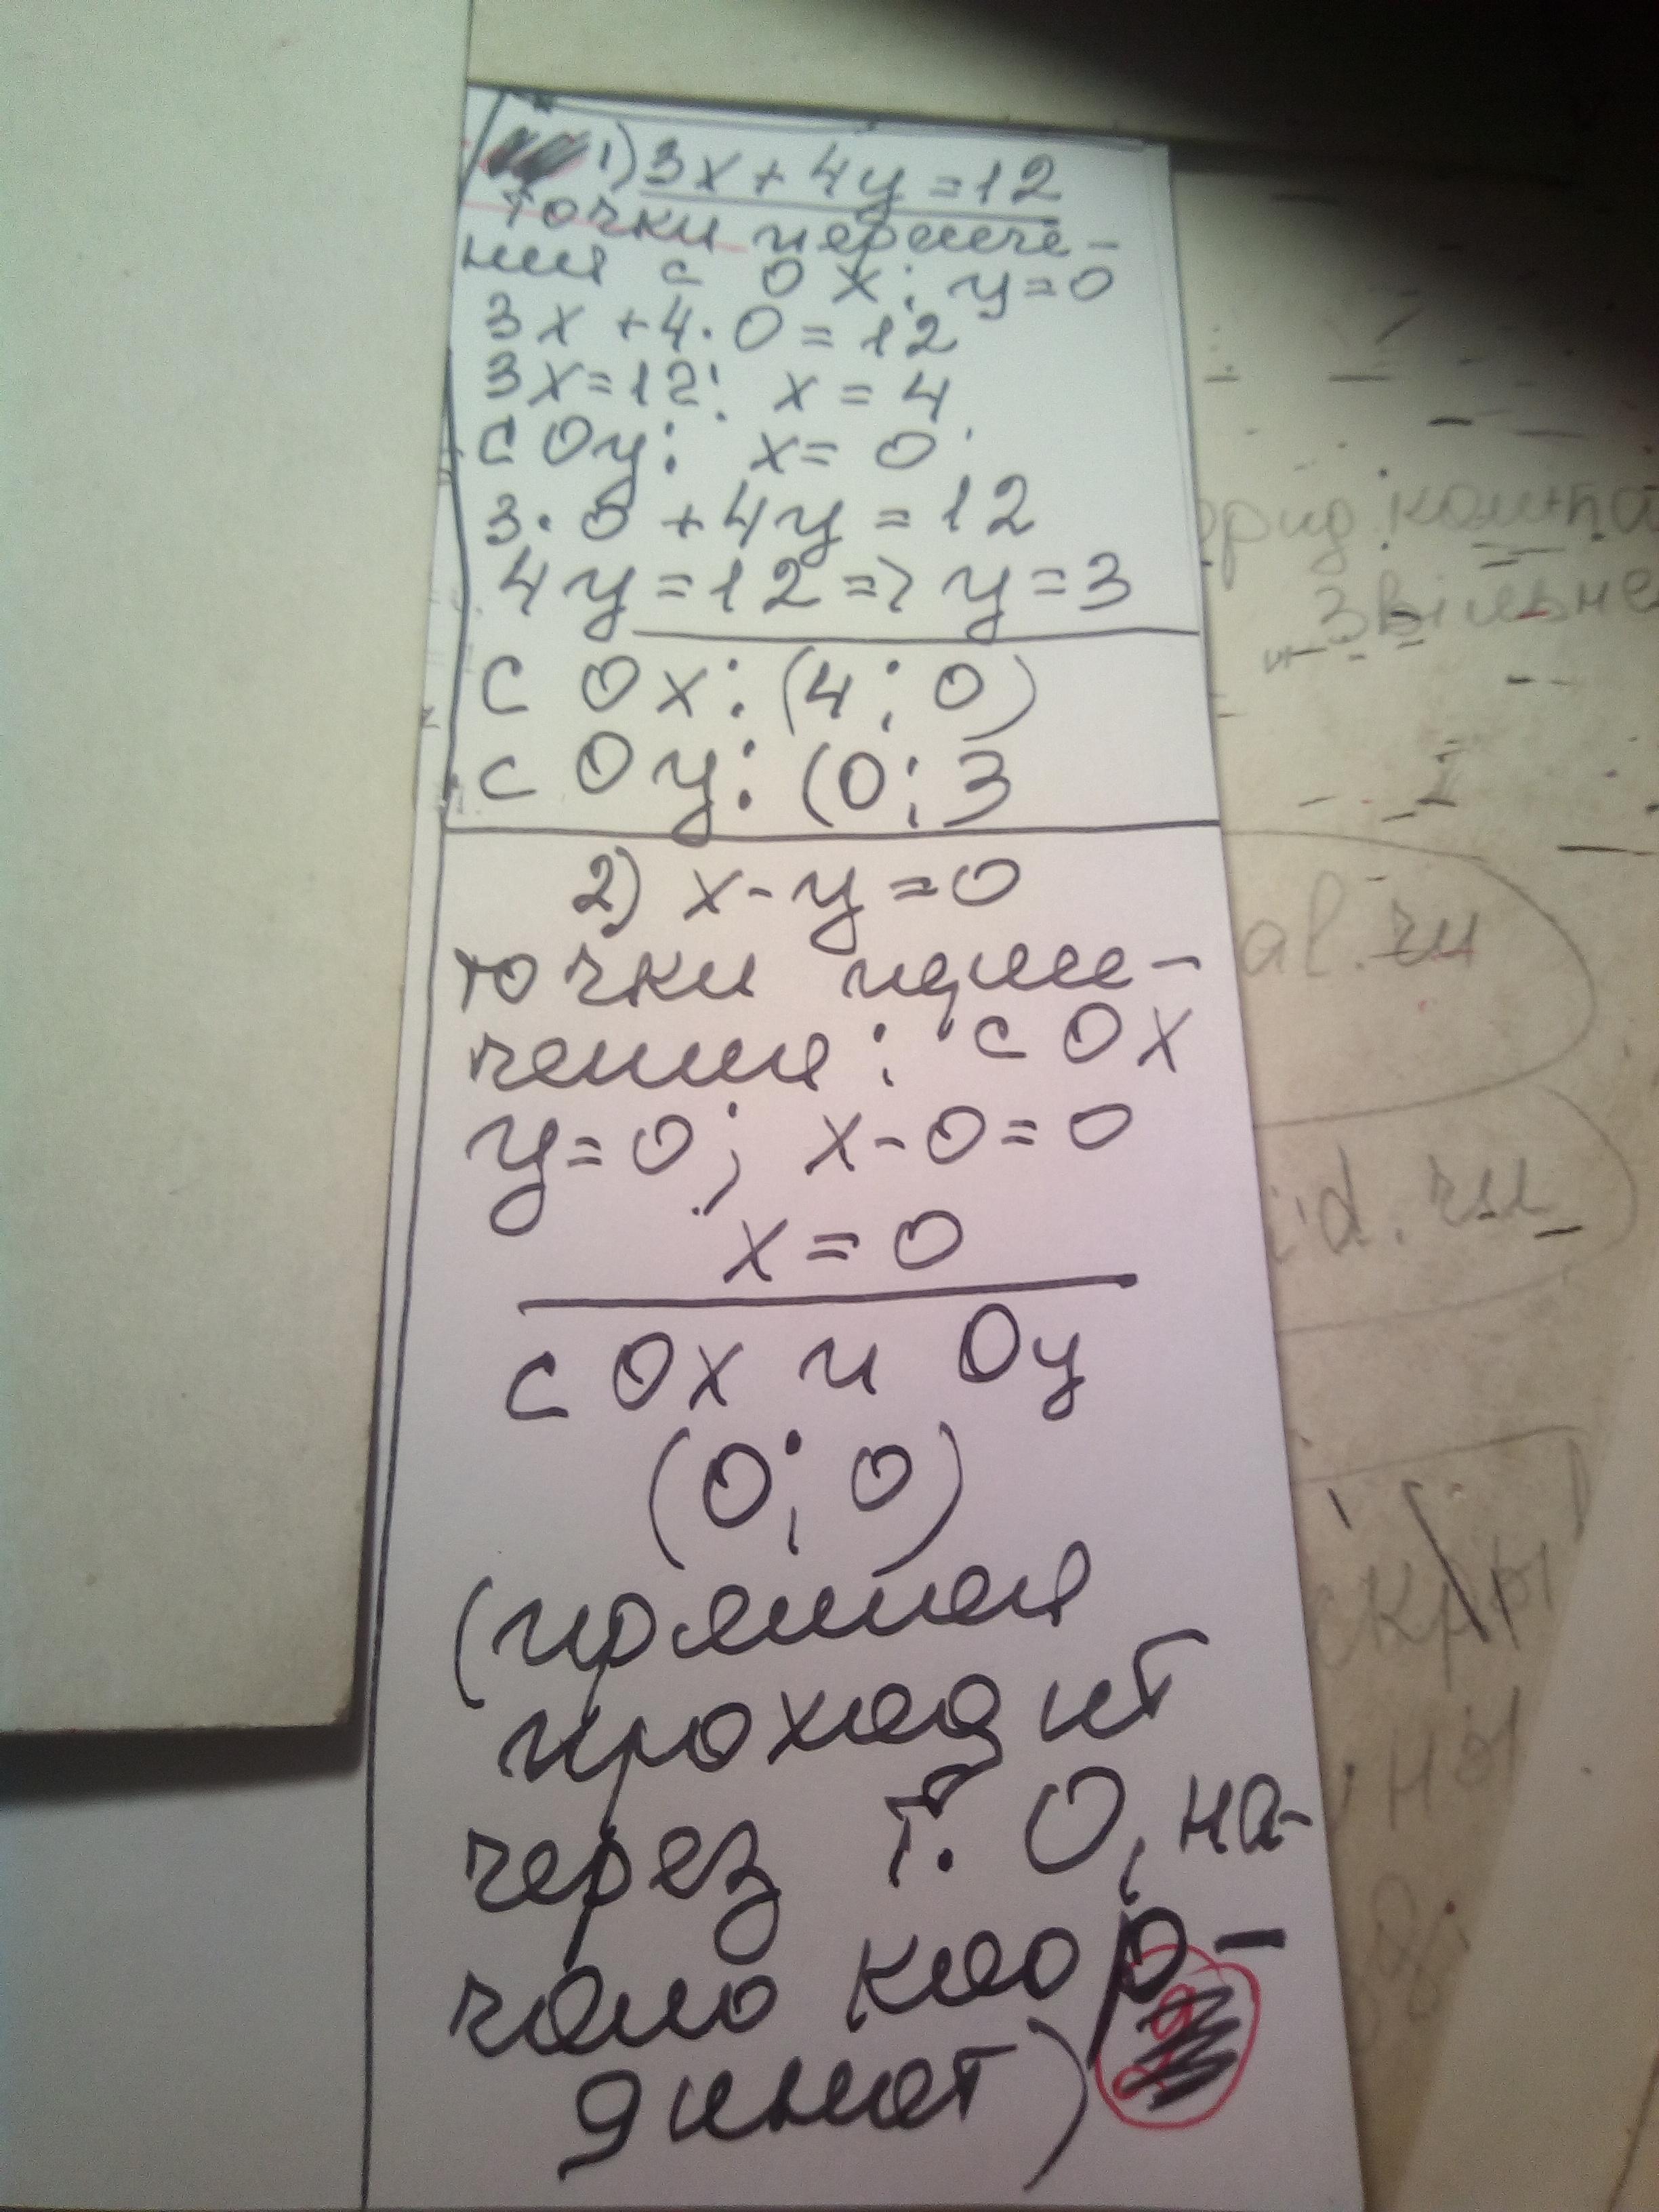 1) 3x + 4y = 12
точки пересече-
ния с Ox: y=0
3x + 4·0 = 12
3x=12; x = 4
с Oy: x = 0
3·0 + 4y = 12
4y = 12 => y = 3
с Ox: (4; 0)
с Oy: (0; 3
2) x - y = 0
точки пересе-
чения: с Ox
y=0; x-0=0
x = 0
с Ox и Oy
(0; 0)
(прямая
проходит
через т. O, на-
чало коор-
динат)
al.ru
id.ru